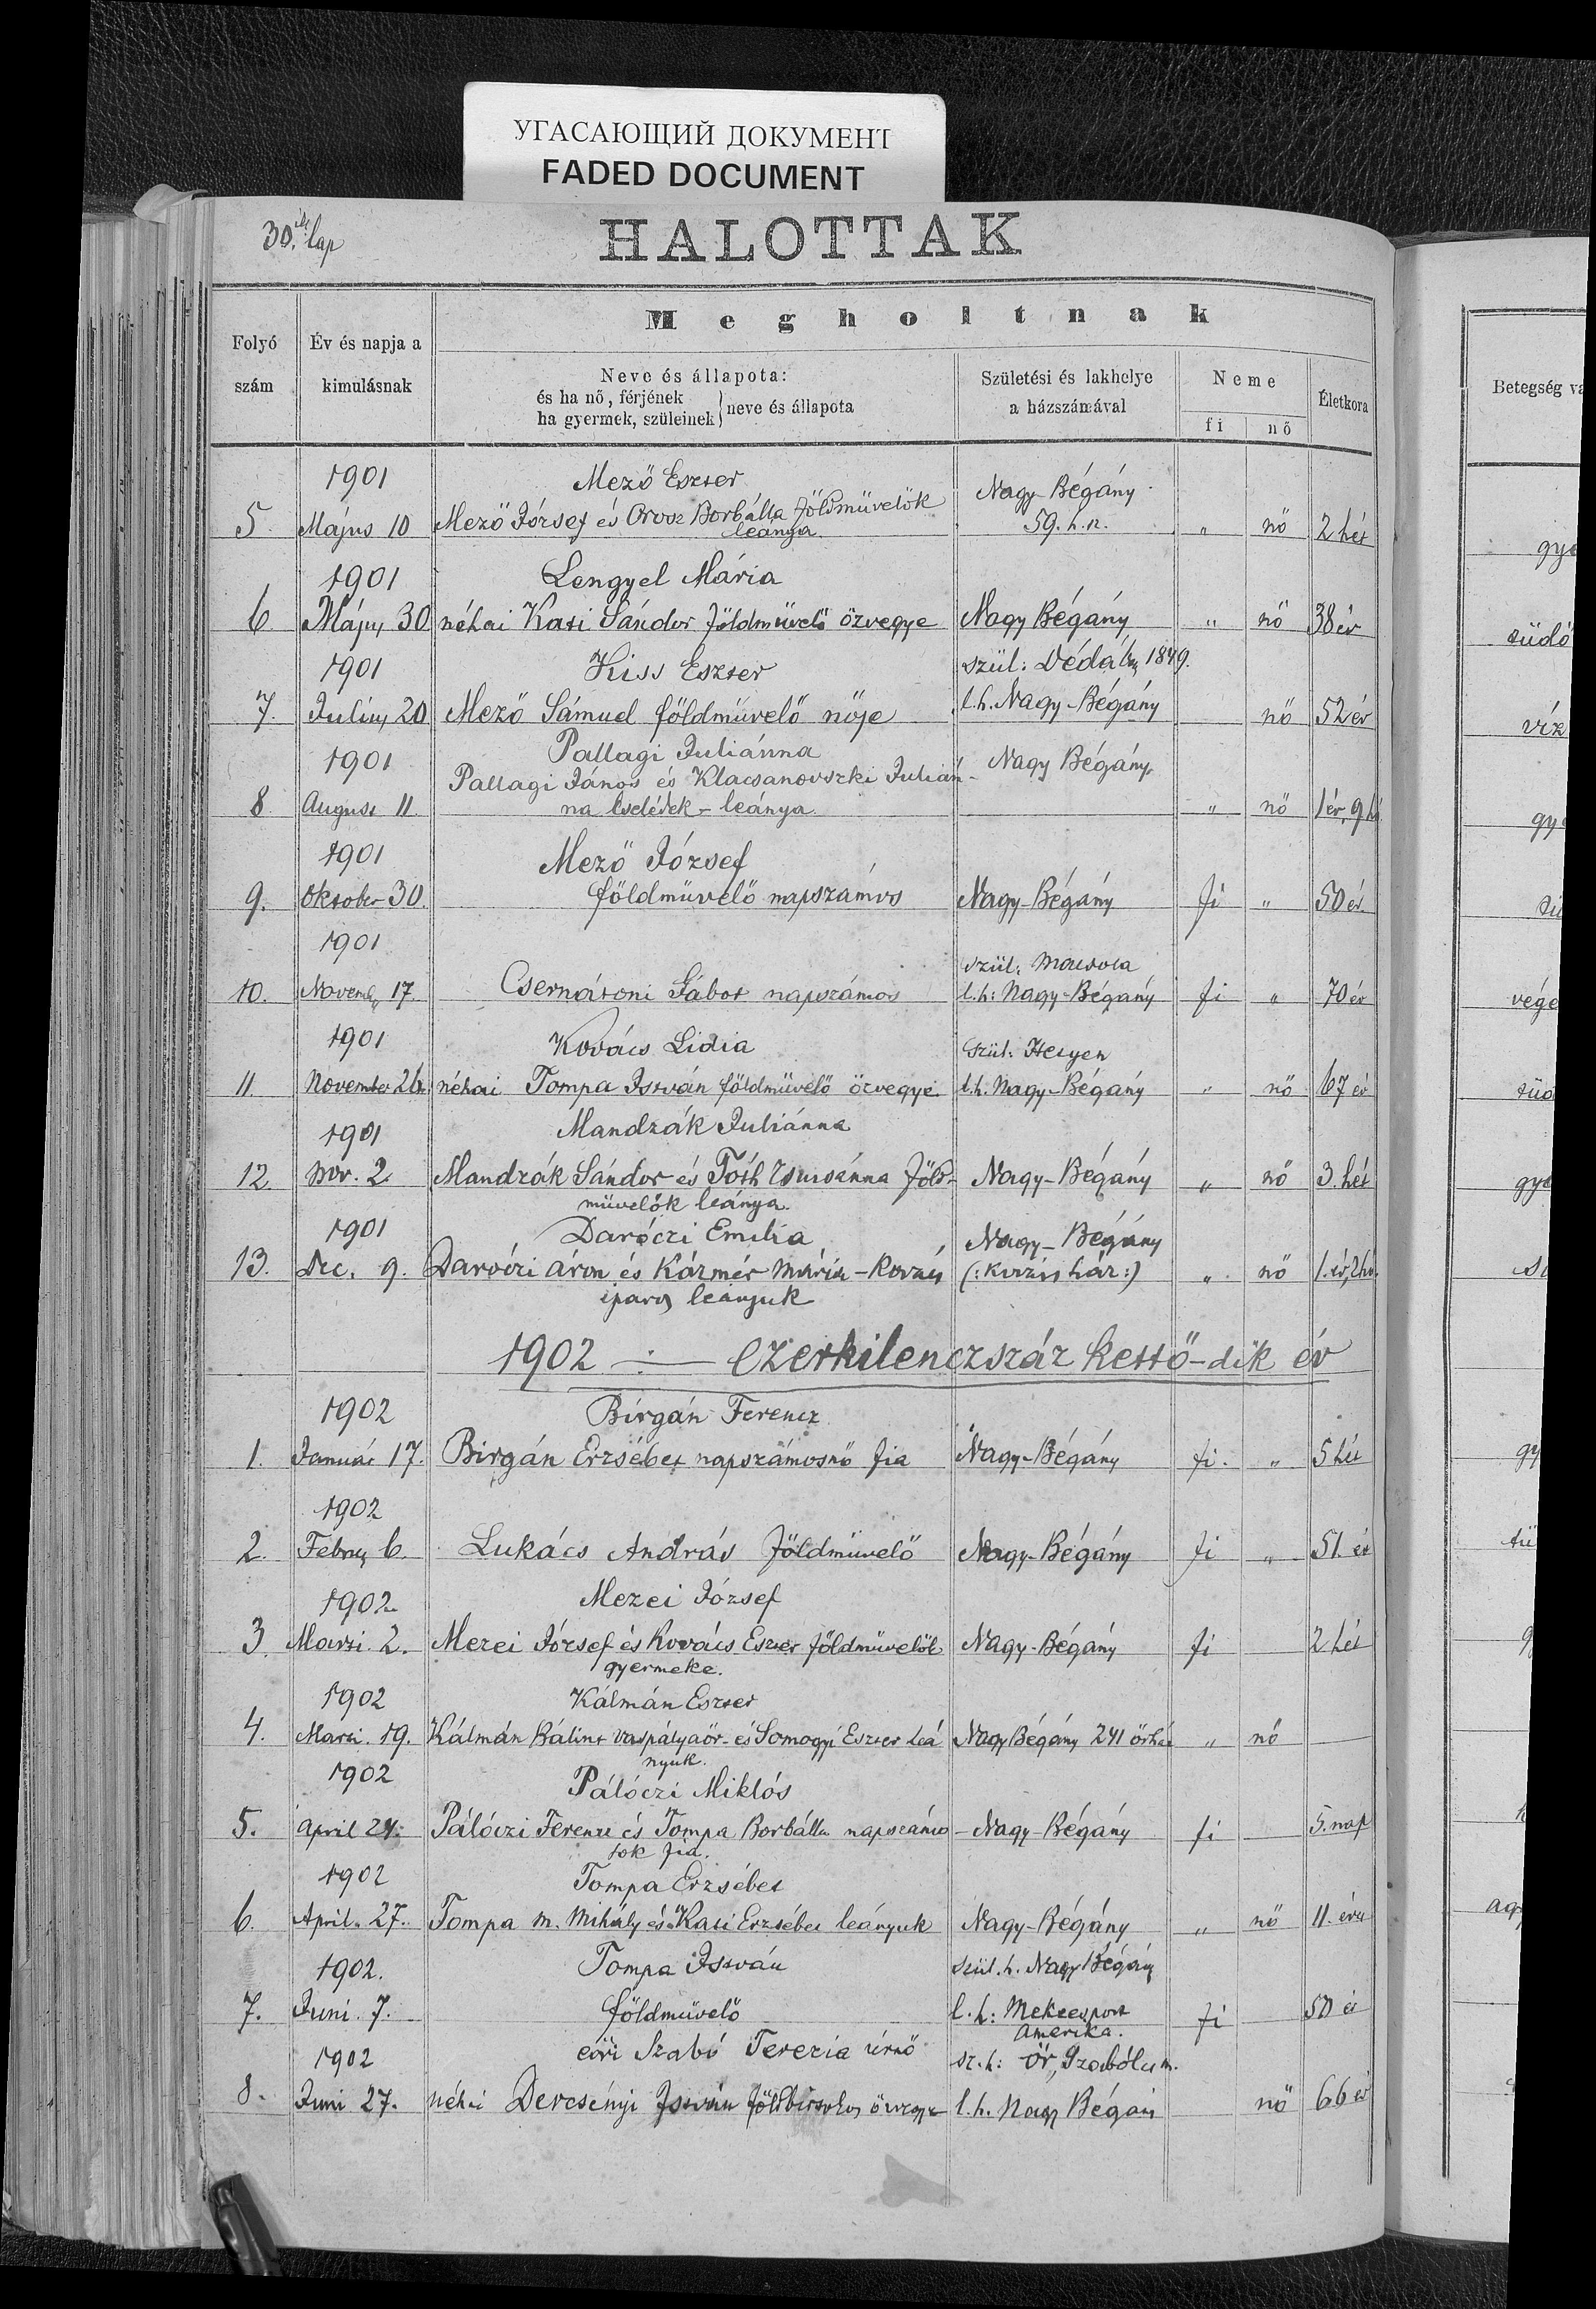 УГАСАЮЩИЙ ДОКУМЕНТ
FADED DOCUMENT
30. ik lap
HALOTTAK
Megholtnak
Folyó szám
Év és napja a kimulásnak
Neve és állapota:
és ha nő, férjének
ha gyermek, szüleinek } neve és állapota
Születési és lakhelye a házszámával
Neme
fi nő
Életkora
Betegség va
1901 Mező Eszter Nagy-Bégány
5. Május 10 Mező József és Orosz Borbálla földművelők 59. h. n. " nő 2 hét
leánya.
1901 Lengyel Mária
6. Május 30 néhai Kati Sándor földművelő özvegye Nagy Bégány " nő 38 év
1901 Kiss Eszter szül: Dédában 1849.
7. Julius 20 Mező Sámuel földművelő nője l.h. Nagy-Bégány nő 52 év
1901 Pallagi Juliánna
Pallagi János és Klacsanovszki Julián- Nagy Bégány
8. August 11. na cselédek - leánya " nő 1 év, 9 hó
1901 Mező József
9. Oktober 30. földművelő napszámos Nagy-Bégány fi " 50 év.
1901 szül:
10. Novemb 17. Csernátoni Gábor napszámos l.h: Nagy-Bégány fi " 70 év
1901 Kovács Lidia szül: Hetyen
11. November 26. néhai Tompa István földművelő özvegye. l.h. Nagy-Bégány " nő 67 év
1901 Mandzák Juliánna
12. nov. 2. Mandzák Sándor és Tóth Zsuzsánna föld- Nagy-Bégány " nő 3. hét
művelők leánya.
1901 Daróczi Emilia Nagy-Bégány
13. Dec. 9. Daróczi Áron és Kázmér Mária - kovács (: kovács ház :) " nő 1. év, 2 hó.
iparos leányuk
1902 ÷ Ezerkilenczszáz kettő-dik év
1902 Birgán Ferencz
1. Január 17. Birgán Erzsébet napszámosnő fia Nagy-Bégány fi. " 5 hét
1902
2. Febru 6. Lukács András földművelő Nagy-Bégány fi " 51. év
1902. Mezei József
3 Marti. 2. Mezei József és Kovács Eszter földművelők Nagy-Bégány fi 2 hét
gyermeke.
1902 Kálmán Eszter
4. Marti. 19. Kálmán Bálint vaspályaőr és Somogyi Eszter leá Nagy Bégány 241 őrház " nő
nyuk.
1902 Pálóczi Miklós
5. April 24. Pálóczi Ferencz és Tompa Borbálla napszámo- Nagy-Bégány fi 5. nap
sok fia.
1902 Tompa Erzsébet
6. April. 27. Tompa m. Mihály és Kati Erzsébet leányuk Nagy-Bégány " nő 11. éves
1902. Tompa István szül. h. Nagy Bégány
7. Juni. 7. földművelő l. h: Mekeesport fi 50 év
Amerika.
1902 eőri Szabó Terezia úrnő sz. h: Őr, Szabólcs m.
8. Juni 27. néhai Dercsényi István földbirtokos özvegye l. h. Nagy Bégány nő 66 év